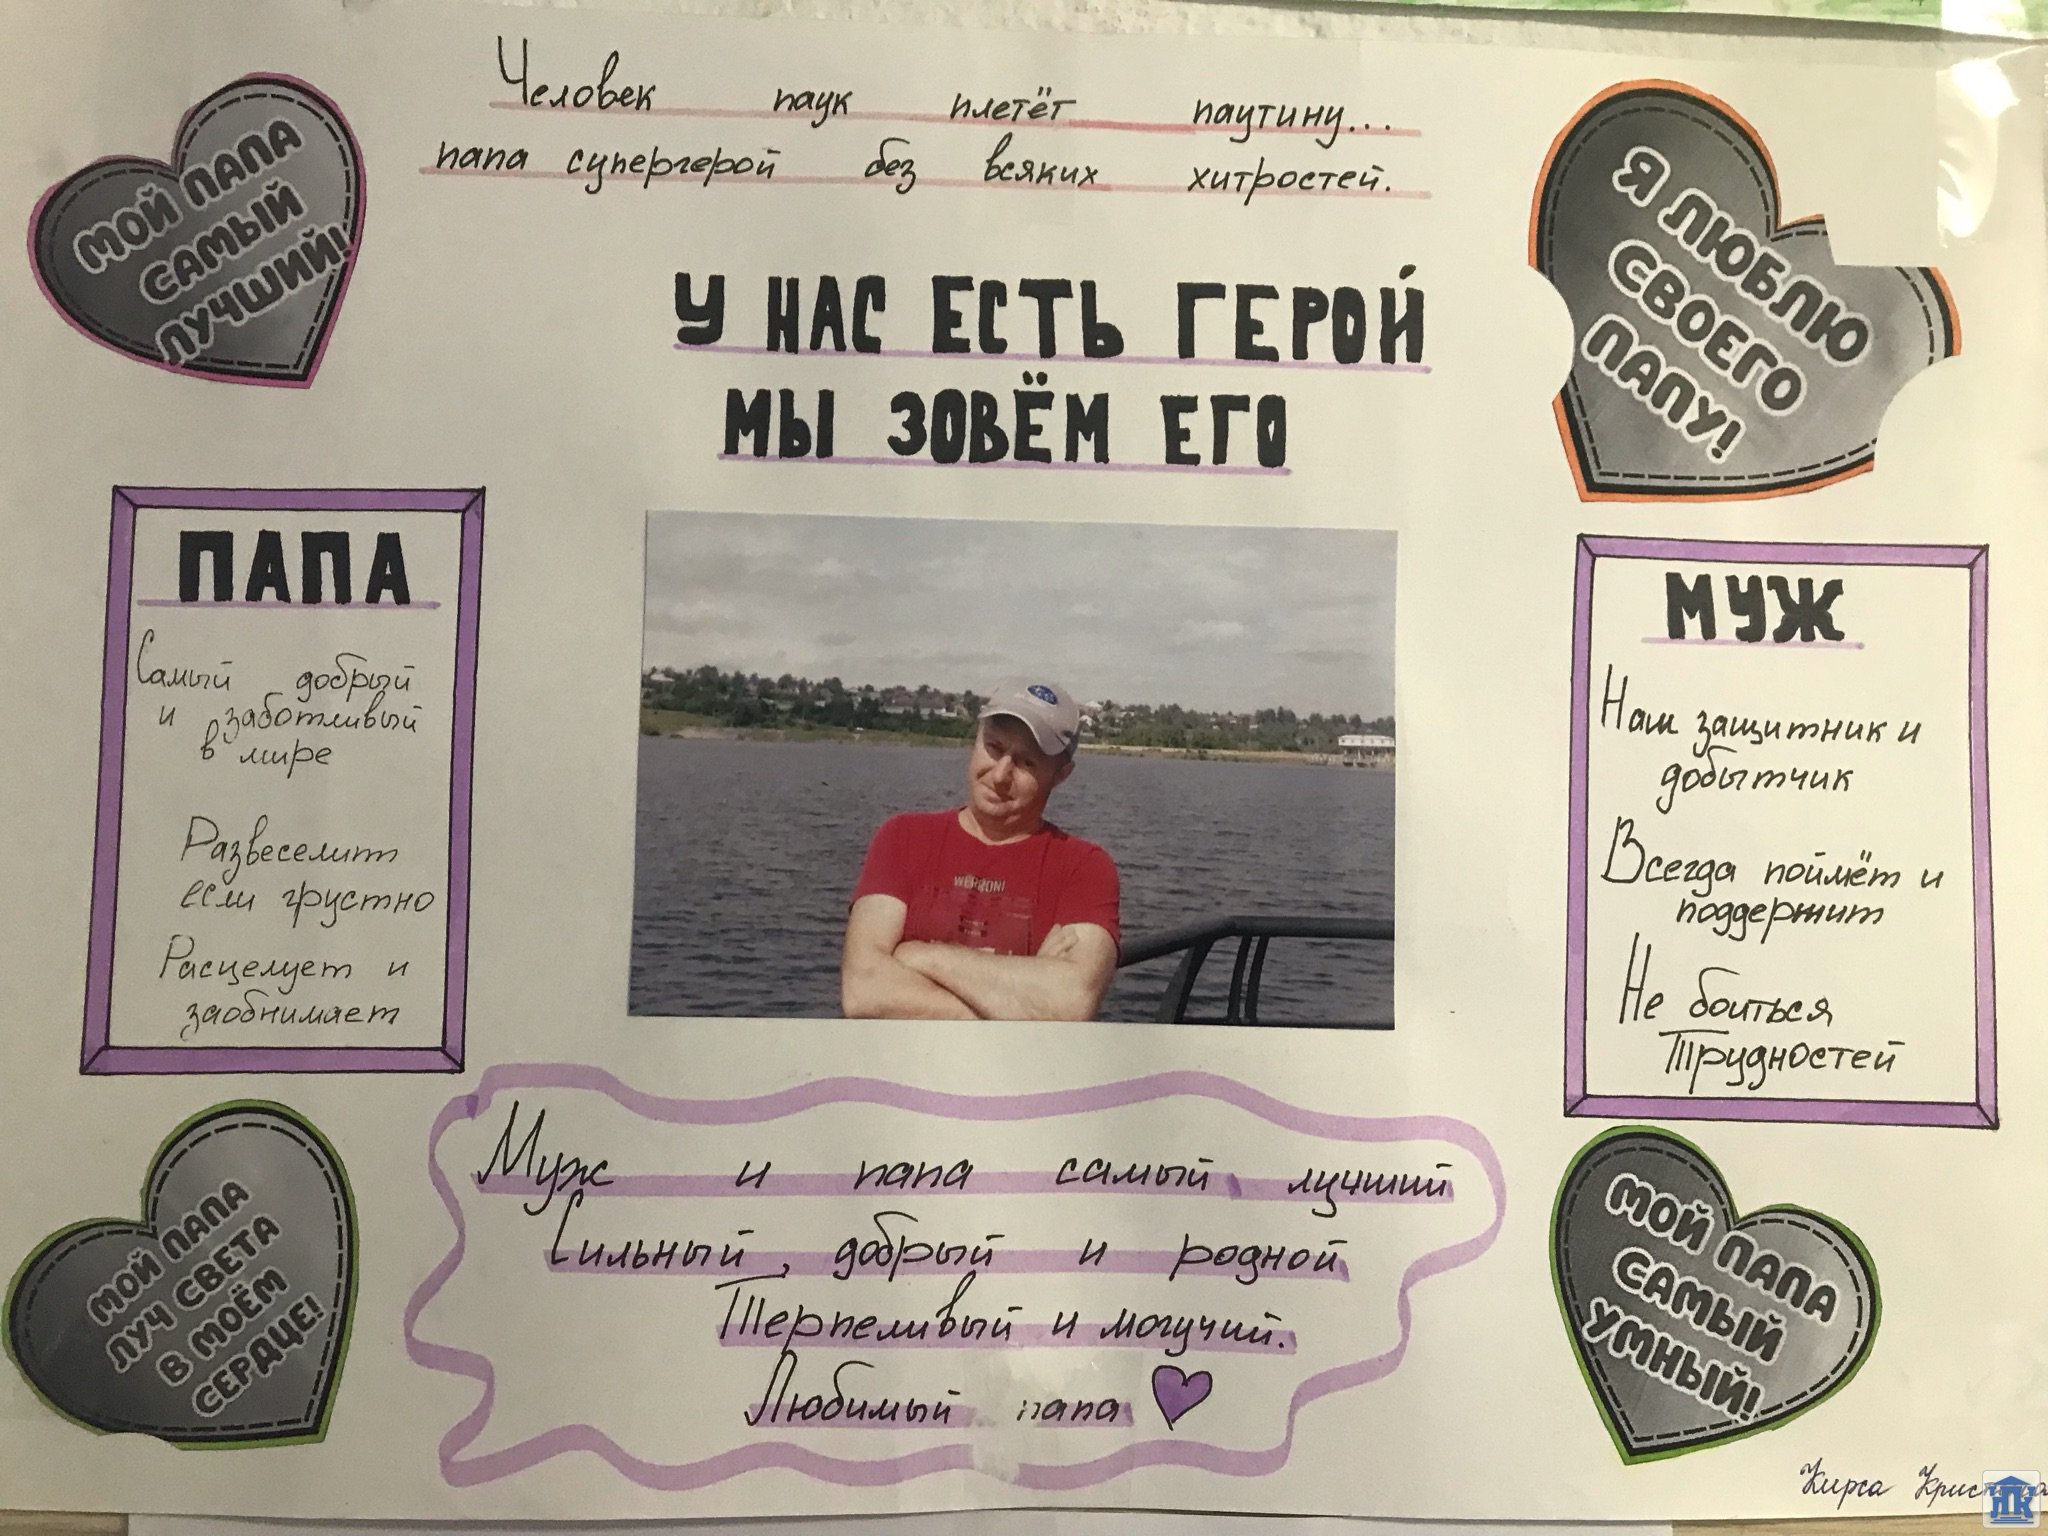 Человек паук плетёт паутину...
папа супергерой без всяких хитростей.
МОЙ ПАПА
САМЫЙ
ЛУЧШИЙ!
Я ЛЮБЛЮ
СВОЕГО
ПАПУ!
У НАС ЕСТЬ ГЕРОЙ
МЫ ЗОВЁМ ЕГО
ПАПА
Самый добрый
и заботливый
в мире
Развеселит
если грустно
Расцелует и
заобнимает
WERRONI
МУЖ
Наш защитник и
добытчик
Всегда поймёт и
поддержит
Не боиться
Трудностей
МОЙ ПАПА
ЛУЧ СВЕТА
В МОЁМ
СЕРДЦЕ!
Муж и папа самый лучший
Сильный, добрый и родной
Терпеливый и могучий.
Любимый папа
МОЙ ПАПА
САМЫЙ
УМНЫЙ!
ПК